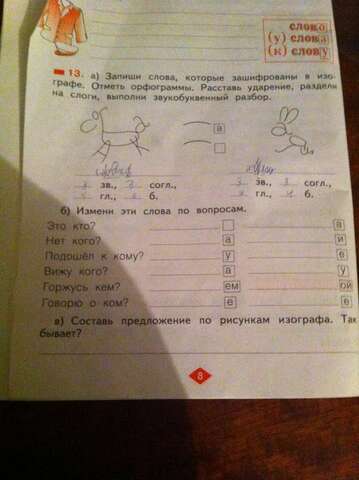 слово
(у) слова
(к) слову
13. а) Запиши слова, которые зашифрованы в изо-
графе. Отметь орфограммы. Расставь ударение, раздели
на слоги, выполни звукобуквенный разбор.
а
зв., 3 согл., зв., согл.,
гл., б. гл., б.
б) Измени эти слова по вопросам.
Это кто? а
Нет кого? а и
Подошёл к кому? у е
Вижу кого? а у
Горжусь кем? ем ой
Говорю о ком? е е
в) Составь предложение по рисункам изографа. Так
бывает?
8